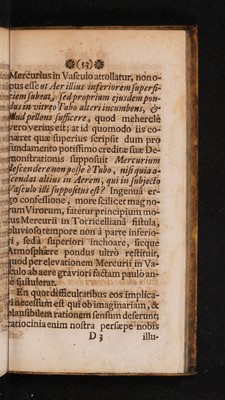 (53)
Mercurius in Vasculo attollatur, non o-
pus esse ut Aer illius inferiorem superfi-
ciem subeat, sed proprium ejusdem pon-
dus in vitreo Tubo alteri incumbens, &
illud pellens sufficere, quod meherclè
vero verius est; at id quomodo iis co-
hæret quæ superius scripsit dum pro
fundamento potissimo creditæ suæ De-
monstrationis supposuit Mercurium
descendere non posse è Tubo, nisi quia a-
scendat altius in Aerem, qui in subjecto
Vasculo illi suppositus est? Ingenua er-
go confessione, more scilicet magno-
rum Virorum, fatetur principium mo-
tus Mercurii in Torricelliana fistula,
pluvioso tempore non à parte inferio-
ri, sed à superiori inchoare, sicque
Atmosphæræ pondus ultrò restituit,
quod per elevationem Mercurii in Va-
sculo ab aere graviori factam paulo an-
te sustulerat.
En quot difficultatibus eos implica-
ri necessum est qui ob imaginariam, &
plausibilem rationem sensum deserunt;
ratiocinia enim nostra persæpe nobis
D 3 illu-